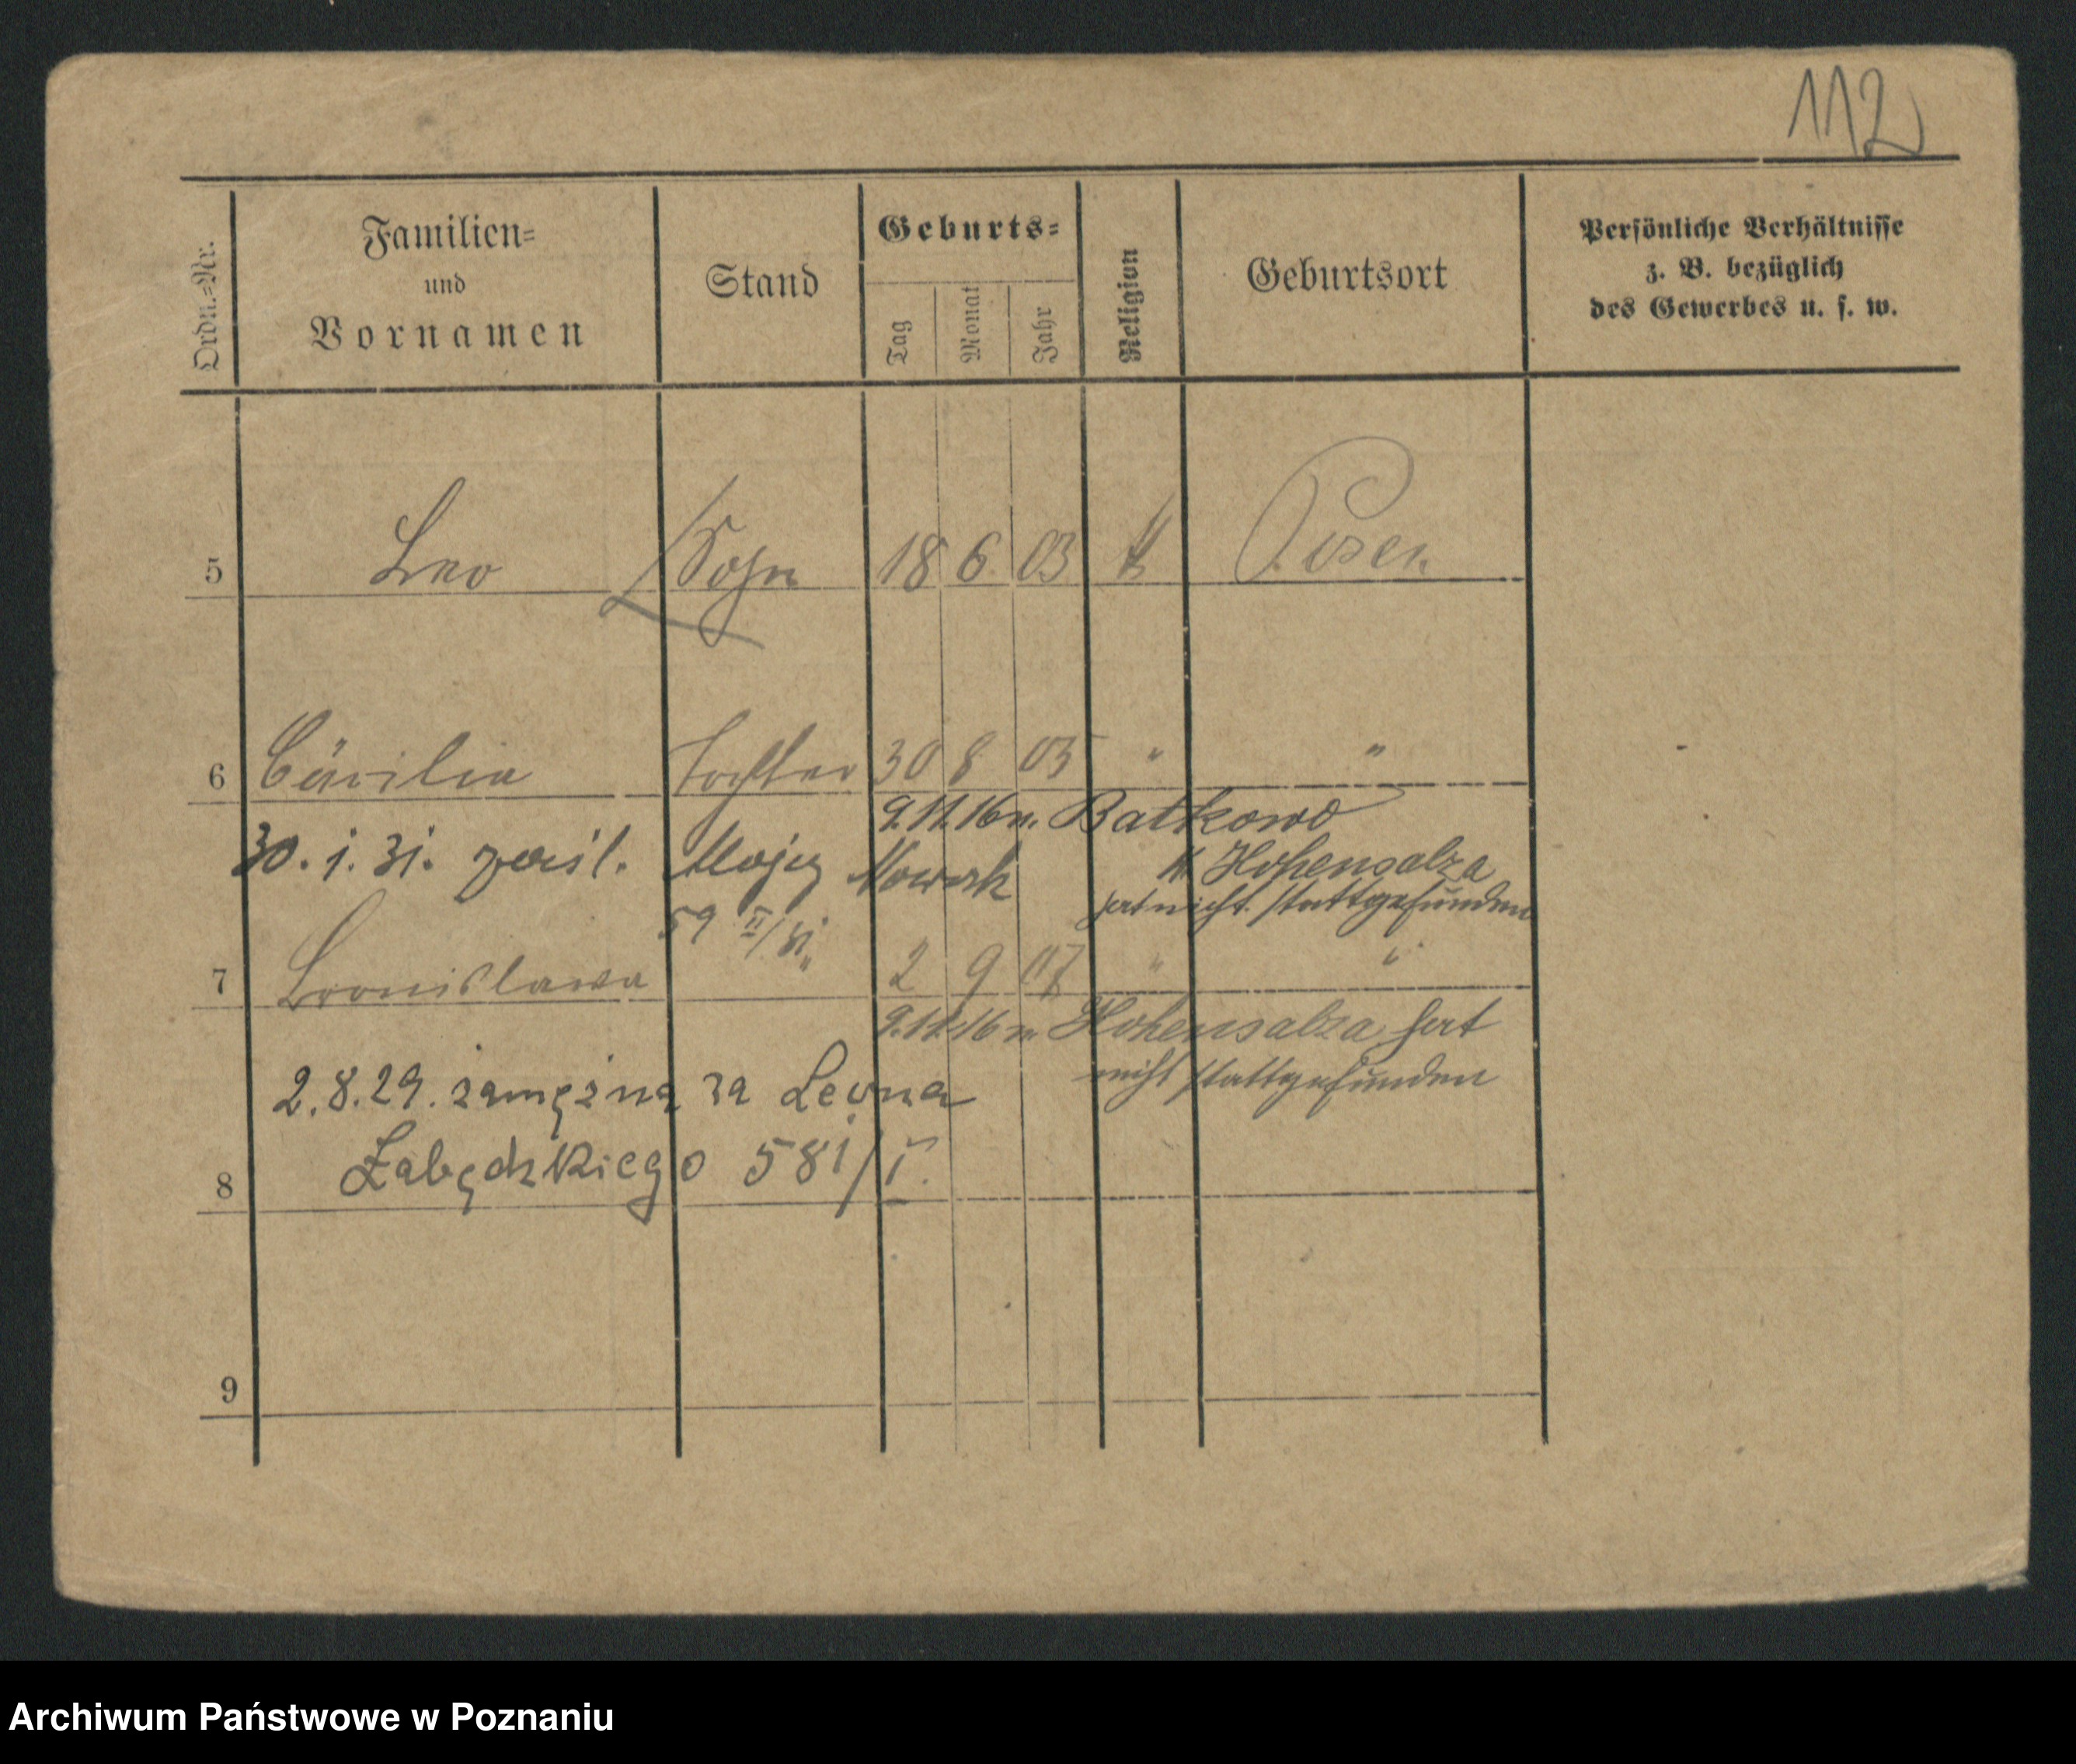 112
Ordn.-Nr.
Familien-
und
Vornamen
Stand
Geburts-
Tag
Monat
Jahr
Religion
Geburtsort
Persönliche Verhältnisse
z. B. bezüglich
des Gewerbes u. s. w.
5 Leo Sohn 18 6 03 k Posen
6 Cäcilia Tochter 30 8 05 " "
9.11.16 n. Batkowo
30.1.31. zaśl. Nowak
Kr. Hohensalza
hat nicht stattgefunden
59 II/31
7 Bronislawa " 2 9 07 " "
9.11.16 n. Hohensalza hat
nicht stattgefunden
2.8.29. zamężna za Leona
Łabędzkiego 581/I.
8
9
Archiwum Państwowe w Poznaniu